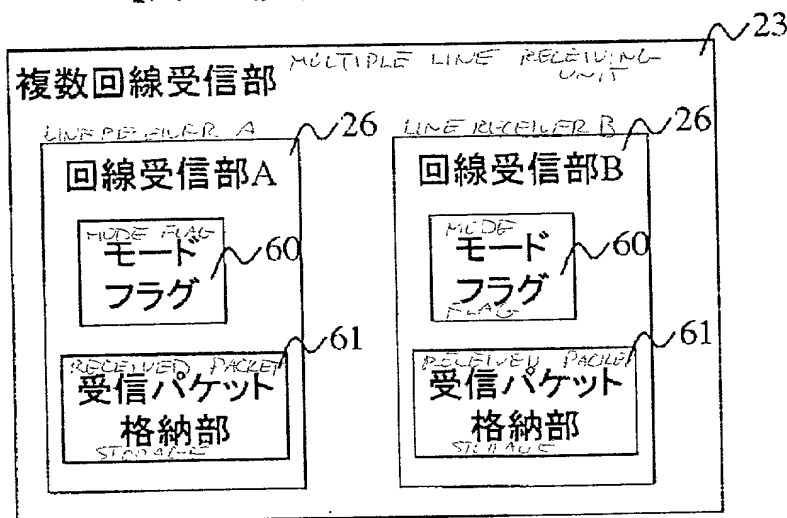 23
複数回線受信部 MULTIPLE LINE RECEIVING UNIT
LINE RECEIVER A 26
回線受信部A
MODE FLAG
モード
フラグ
60
RECEIVED PACKET 61
受信パケット
格納部
STORAGE
LINE RECEIVER B 26
回線受信部B
MODE
モード
フラグ
FLAG
60
RECEIVED PACKET 61
受信パケット
格納部
STORAGE